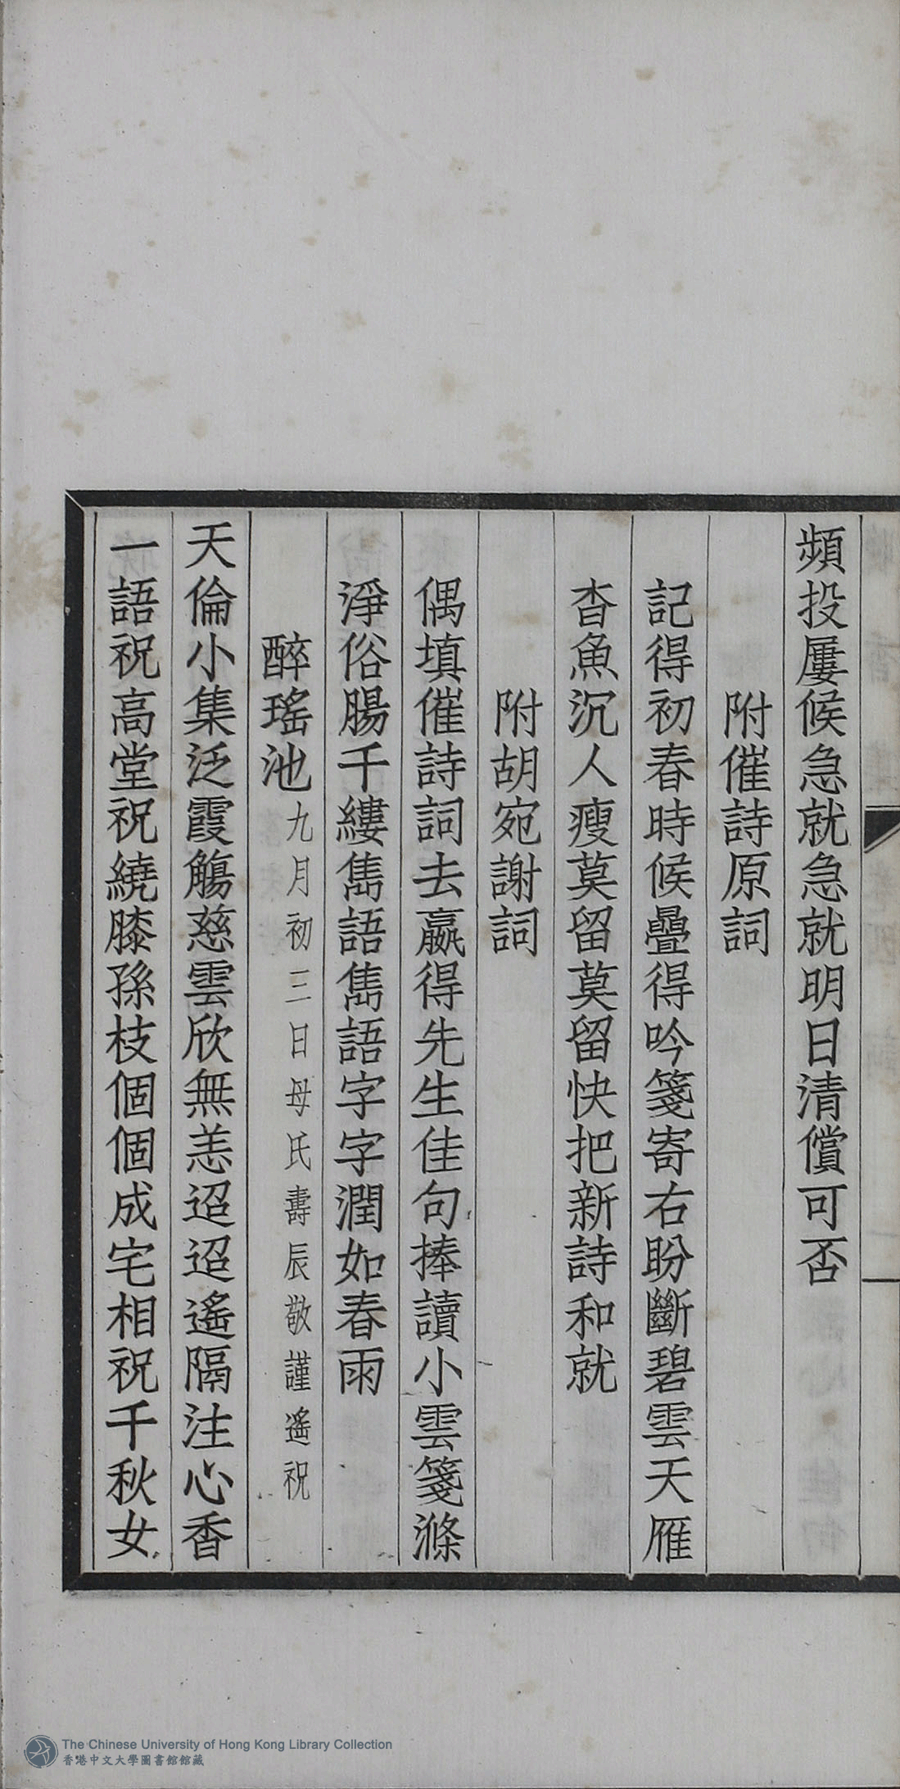 頻投屢候急就急就明日清償可否
附催詩原詞
記得初春時候疊得吟箋寄右盼斷碧雲天雁
杳魚沉人瘦莫留莫留快把新詩和就
附胡宛謝詞
偶填催詩詞去贏得先生佳句捧讀小雲箋滌
淨俗腸千縷雋語雋語字字潤如春雨
醉瑤池九月初三日母氏壽辰敬謹遙祝
天倫小集泛霞觴慈雲欣無恙迢迢遙隔注心香
一語祝高堂祝繞膝孫枝個個成宅相祝千秋女
The Chinese University of Hong Kong Library Collection
香港中文大學圖書館館藏